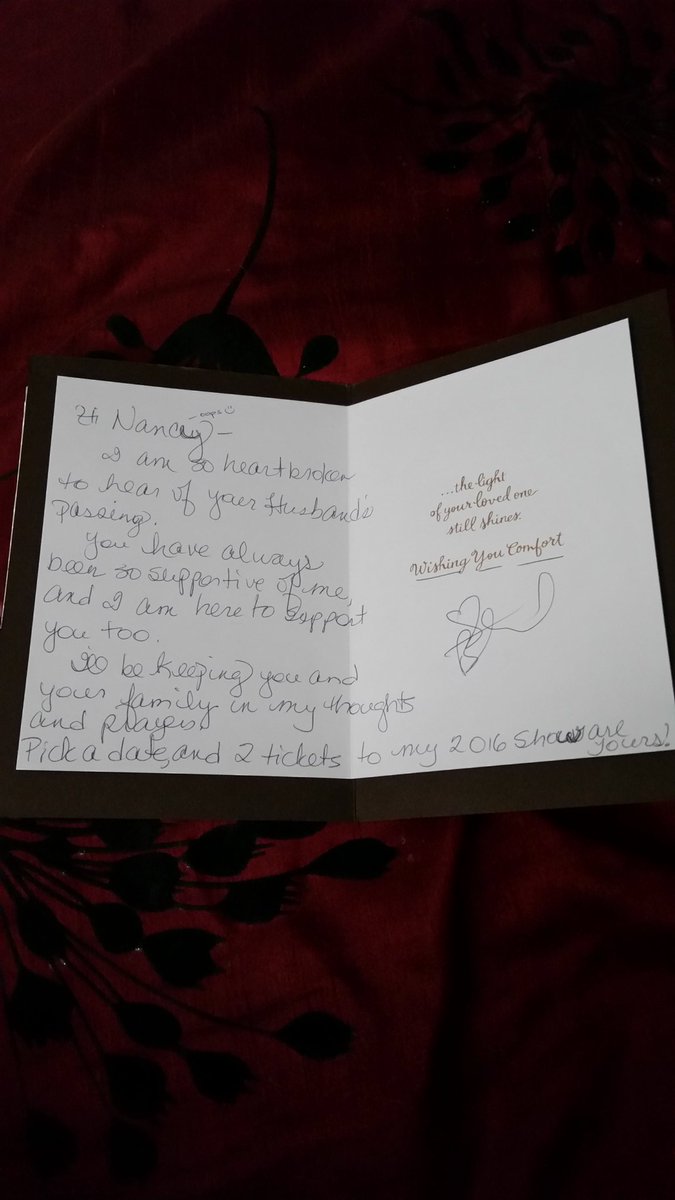 oops☺
Hi Nancy-
I am so heartbroken
to hear of your Husband's
passing.
You have always
been so supportive of me,
and I am here to support
you too.
I'll be keeping you and
your family in my thoughts
and prayers.
Pick a date, and 2 tickets to my 2016 Show are
yours!
...the light
of your loved one
still shines.
Wishing You Comfort